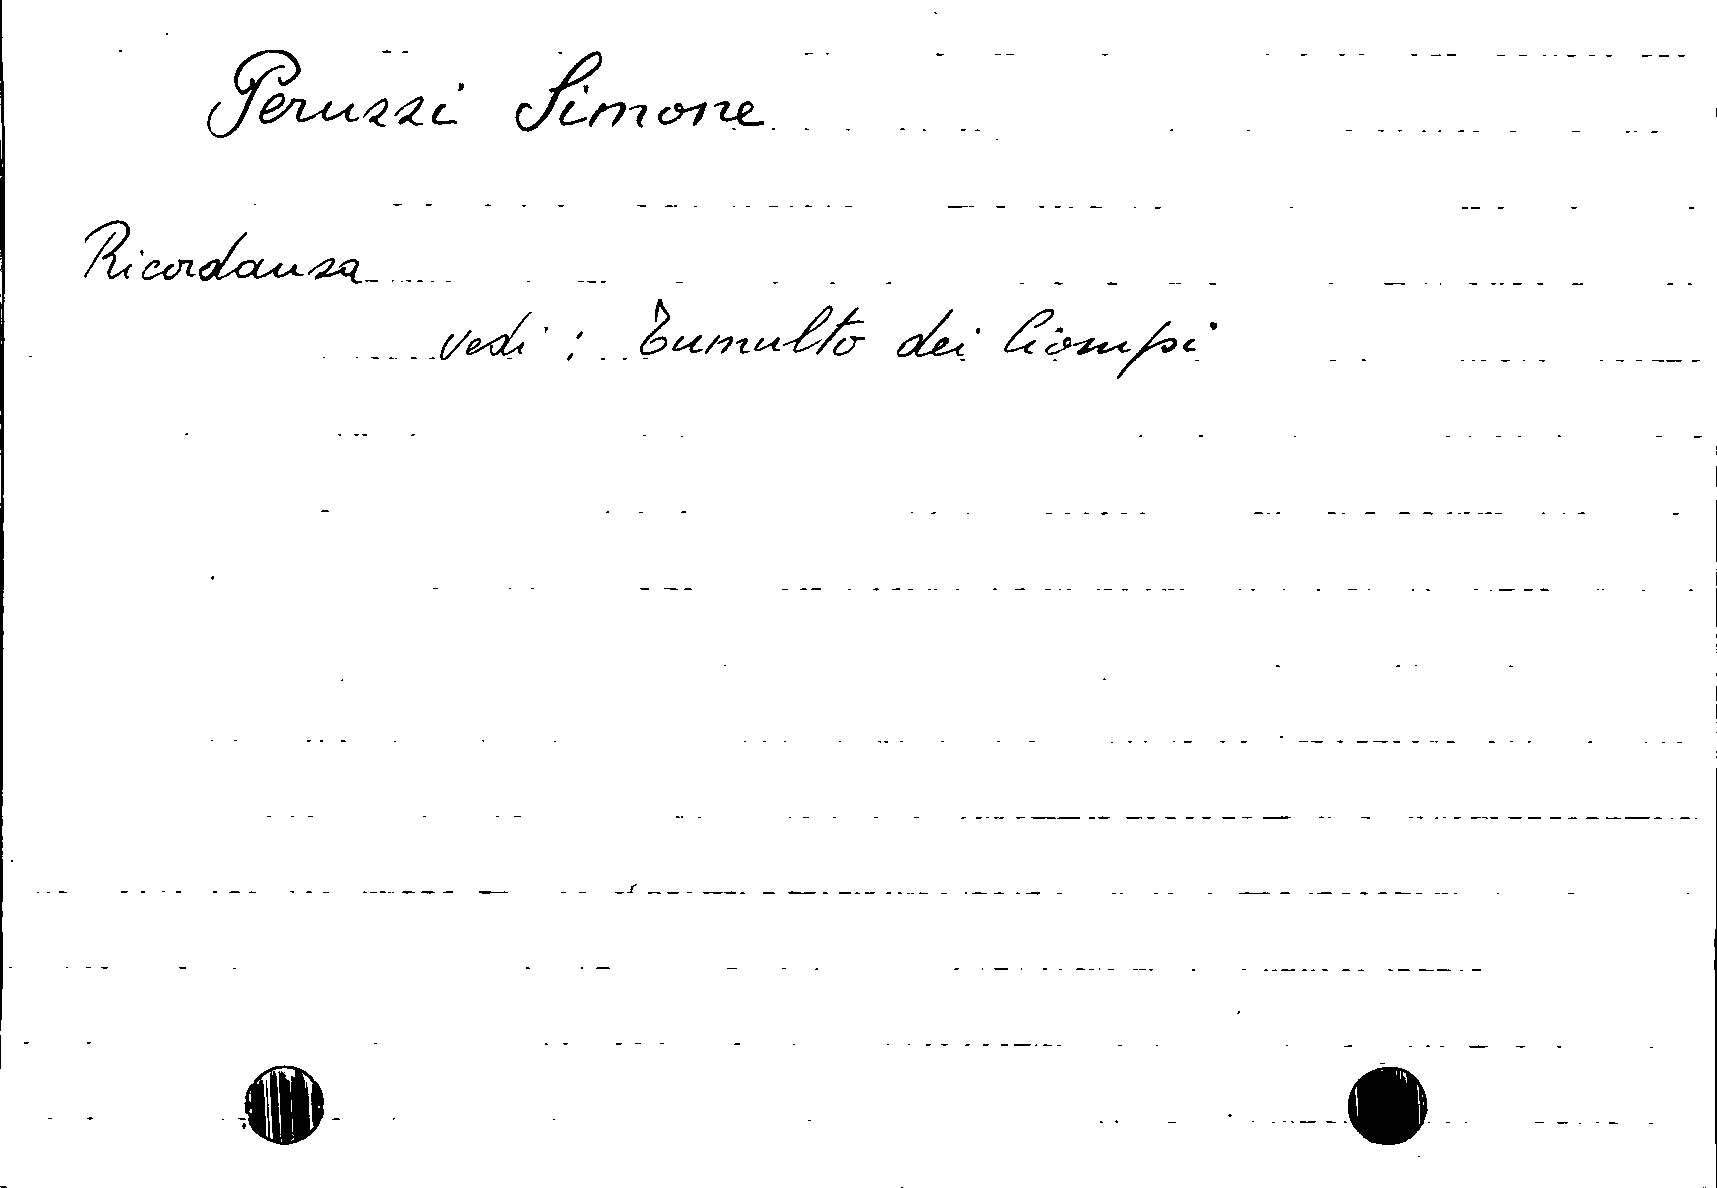 Peruzzi Simone
Ricordanza
vedi : Tumulto dei Ciompi